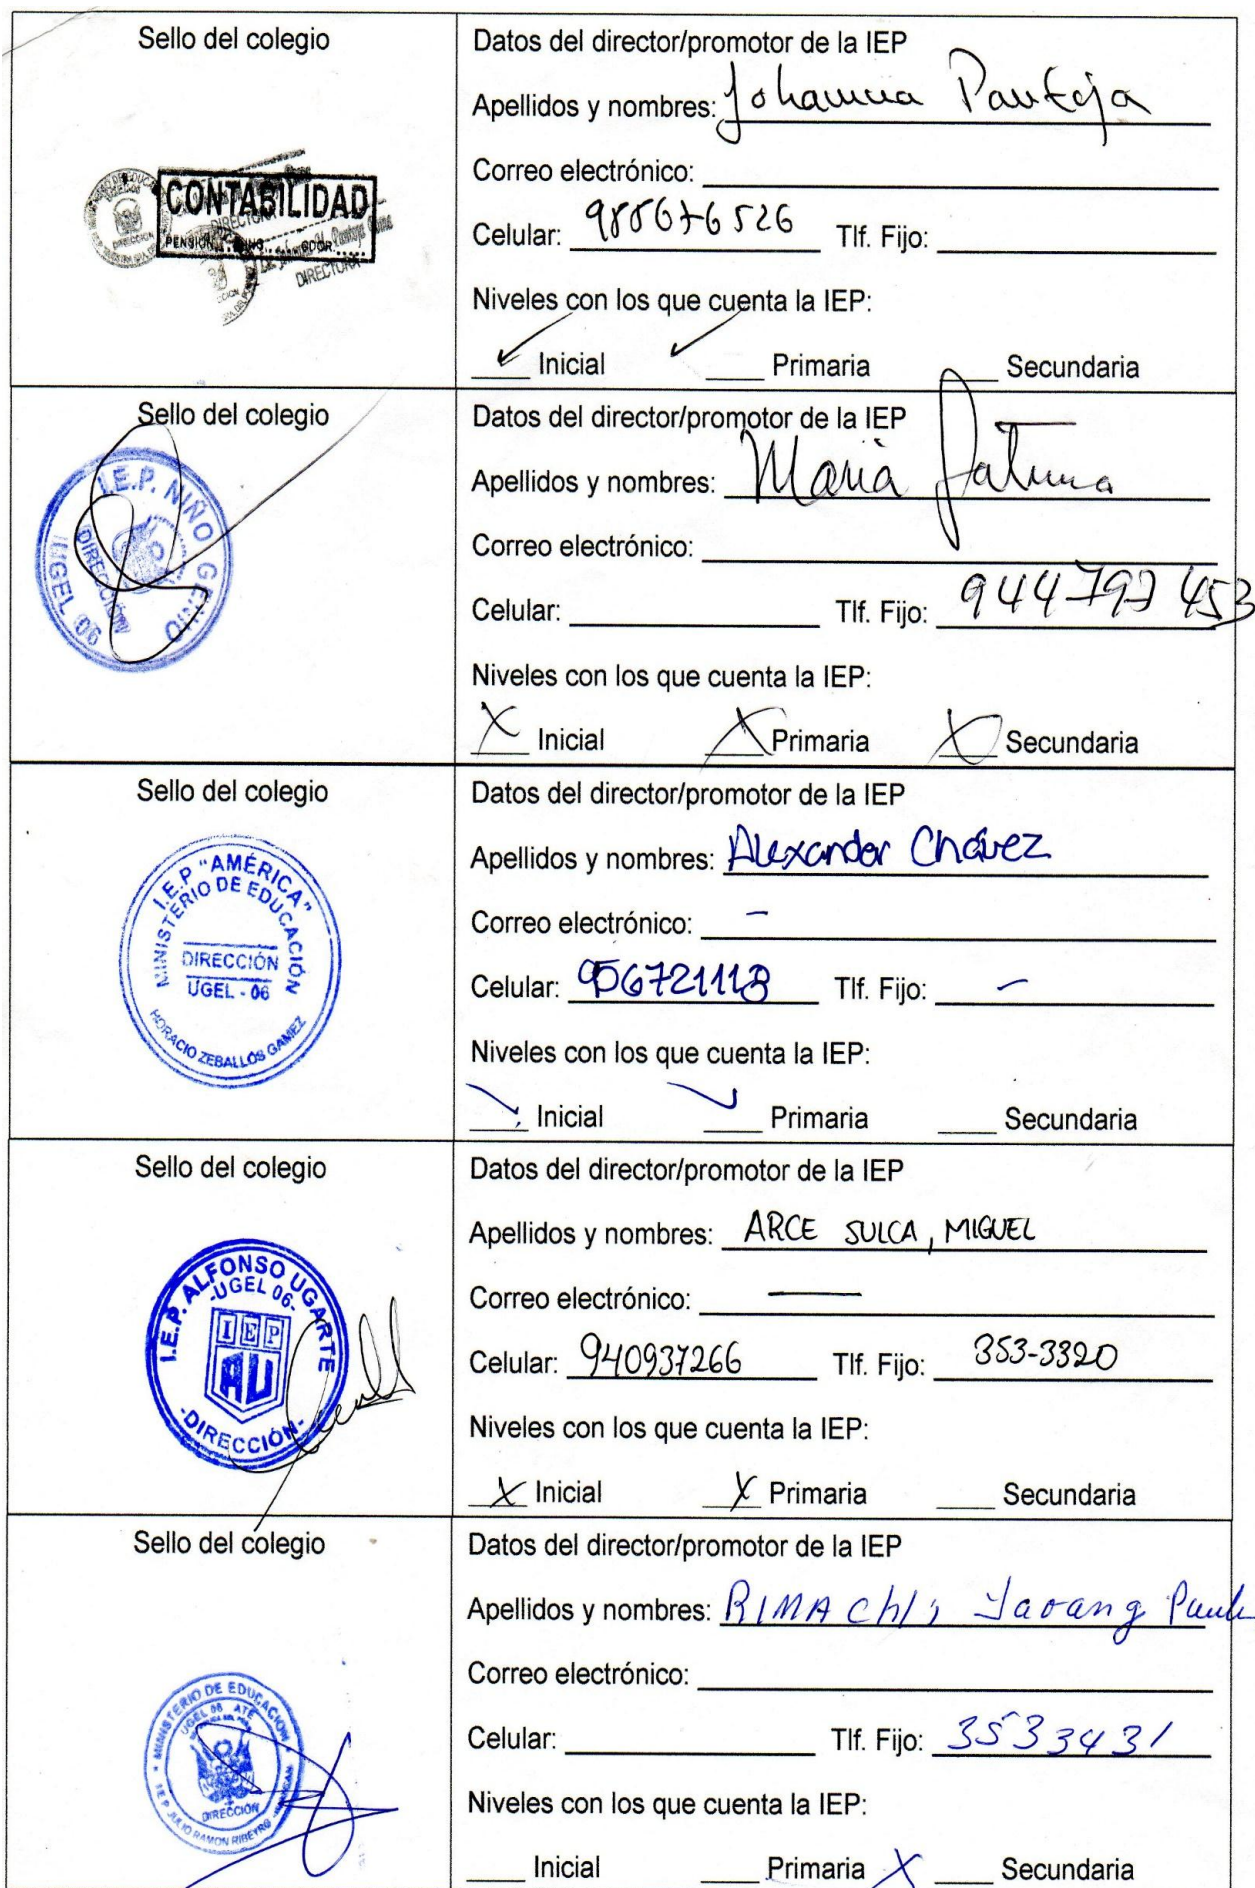 Sello del colegio
CONTABILIDAD
DIRECTORA
DIRECTORA
Datos del director/promotor de la IEP
Apellidos y nombres: Johanna Pantoja
Correo electrónico:
Celular: 988676526 Tlf. Fijo:
Niveles con los que cuenta la IEP:
✓ Inicial ✓ Primaria Secundaria
Sello del colegio
I.E.P. NIÑO GENIO
DIRECCIÓN
UGEL 06
Datos del director/promotor de la IEP
Apellidos y nombres: Maria Fatima
Correo electrónico:
Celular: Tlf. Fijo: 944797453
Niveles con los que cuenta la IEP:
X Inicial X Primaria X Secundaria
Sello del colegio
I.E.P "AMÉRICA"
MINISTERIO DE EDUCACIÓN
DIRECCIÓN
UGEL - 06
HORACIO ZEBALLOS GAMEZ
Datos del director/promotor de la IEP
Apellidos y nombres: Alexander Chávez
Correo electrónico: –
Celular: 956721113 Tlf. Fijo: –
Niveles con los que cuenta la IEP:
✓ Inicial ✓ Primaria Secundaria
Sello del colegio
I.E.P. ALFONSO UGARTE
-UGEL 06-
IEP
AU
-DIRECCIÓN-
Datos del director/promotor de la IEP
Apellidos y nombres: ARCE SULCA, MIGUEL
Correo electrónico: —
Celular: 940937266 Tlf. Fijo: 353-3320
Niveles con los que cuenta la IEP:
X Inicial X Primaria Secundaria
Sello del colegio
MINISTERIO DE EDUCACION
UGEL 06 ATE
DIRECCIÓN
I E P JULIO RAMON RIBEYRO
Datos del director/promotor de la IEP
Apellidos y nombres: RIMAChI,
Correo electrónico:
Celular: Tlf. Fijo: 3533431
Niveles con los que cuenta la IEP:
Inicial Primaria X Secundaria